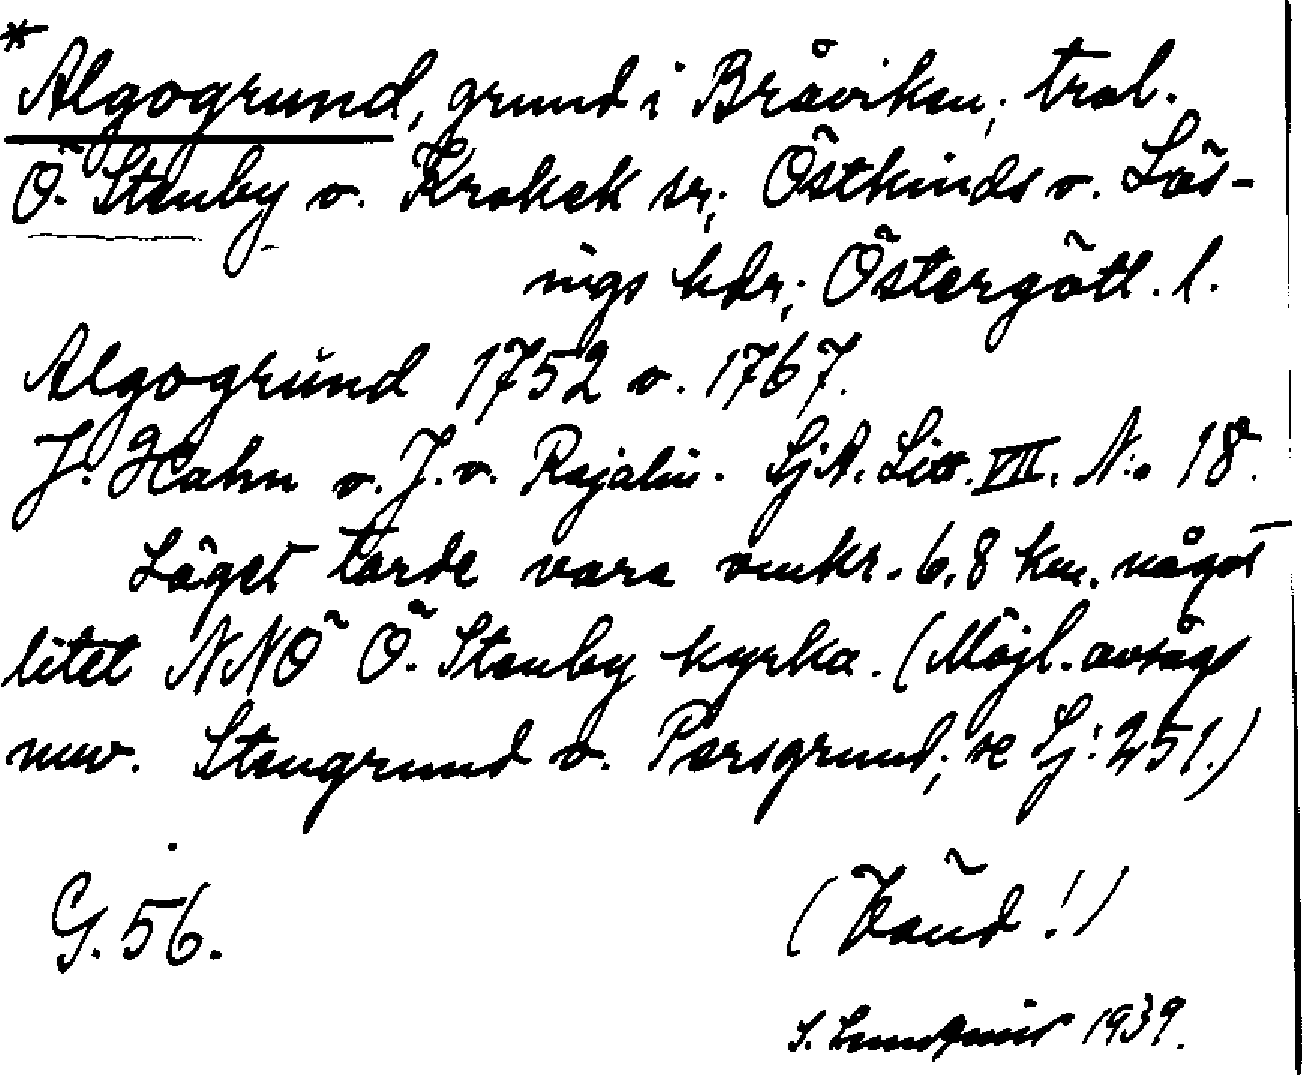 *Algogrund, grund i Bråviken; trol.
Ö. Stenby o. Krokek sr; Östkinds o. Lös-
ings hdr; Östergötl. l.
Algogrŭnd 1752 o. 1767.
J. Hahn o. J. v. Rajalin. SjA. Litt. VII. N:o 18.
Läget torde vara omkr. 6,8 km. något
litet NNÖ Ö. Stenby kyrka. (Möjl. avsågs
nuv. Stengrund o. Persgrund; se Sj: 251.)
G. 56.
(Vänd!)
S. Lundqvist 1939.